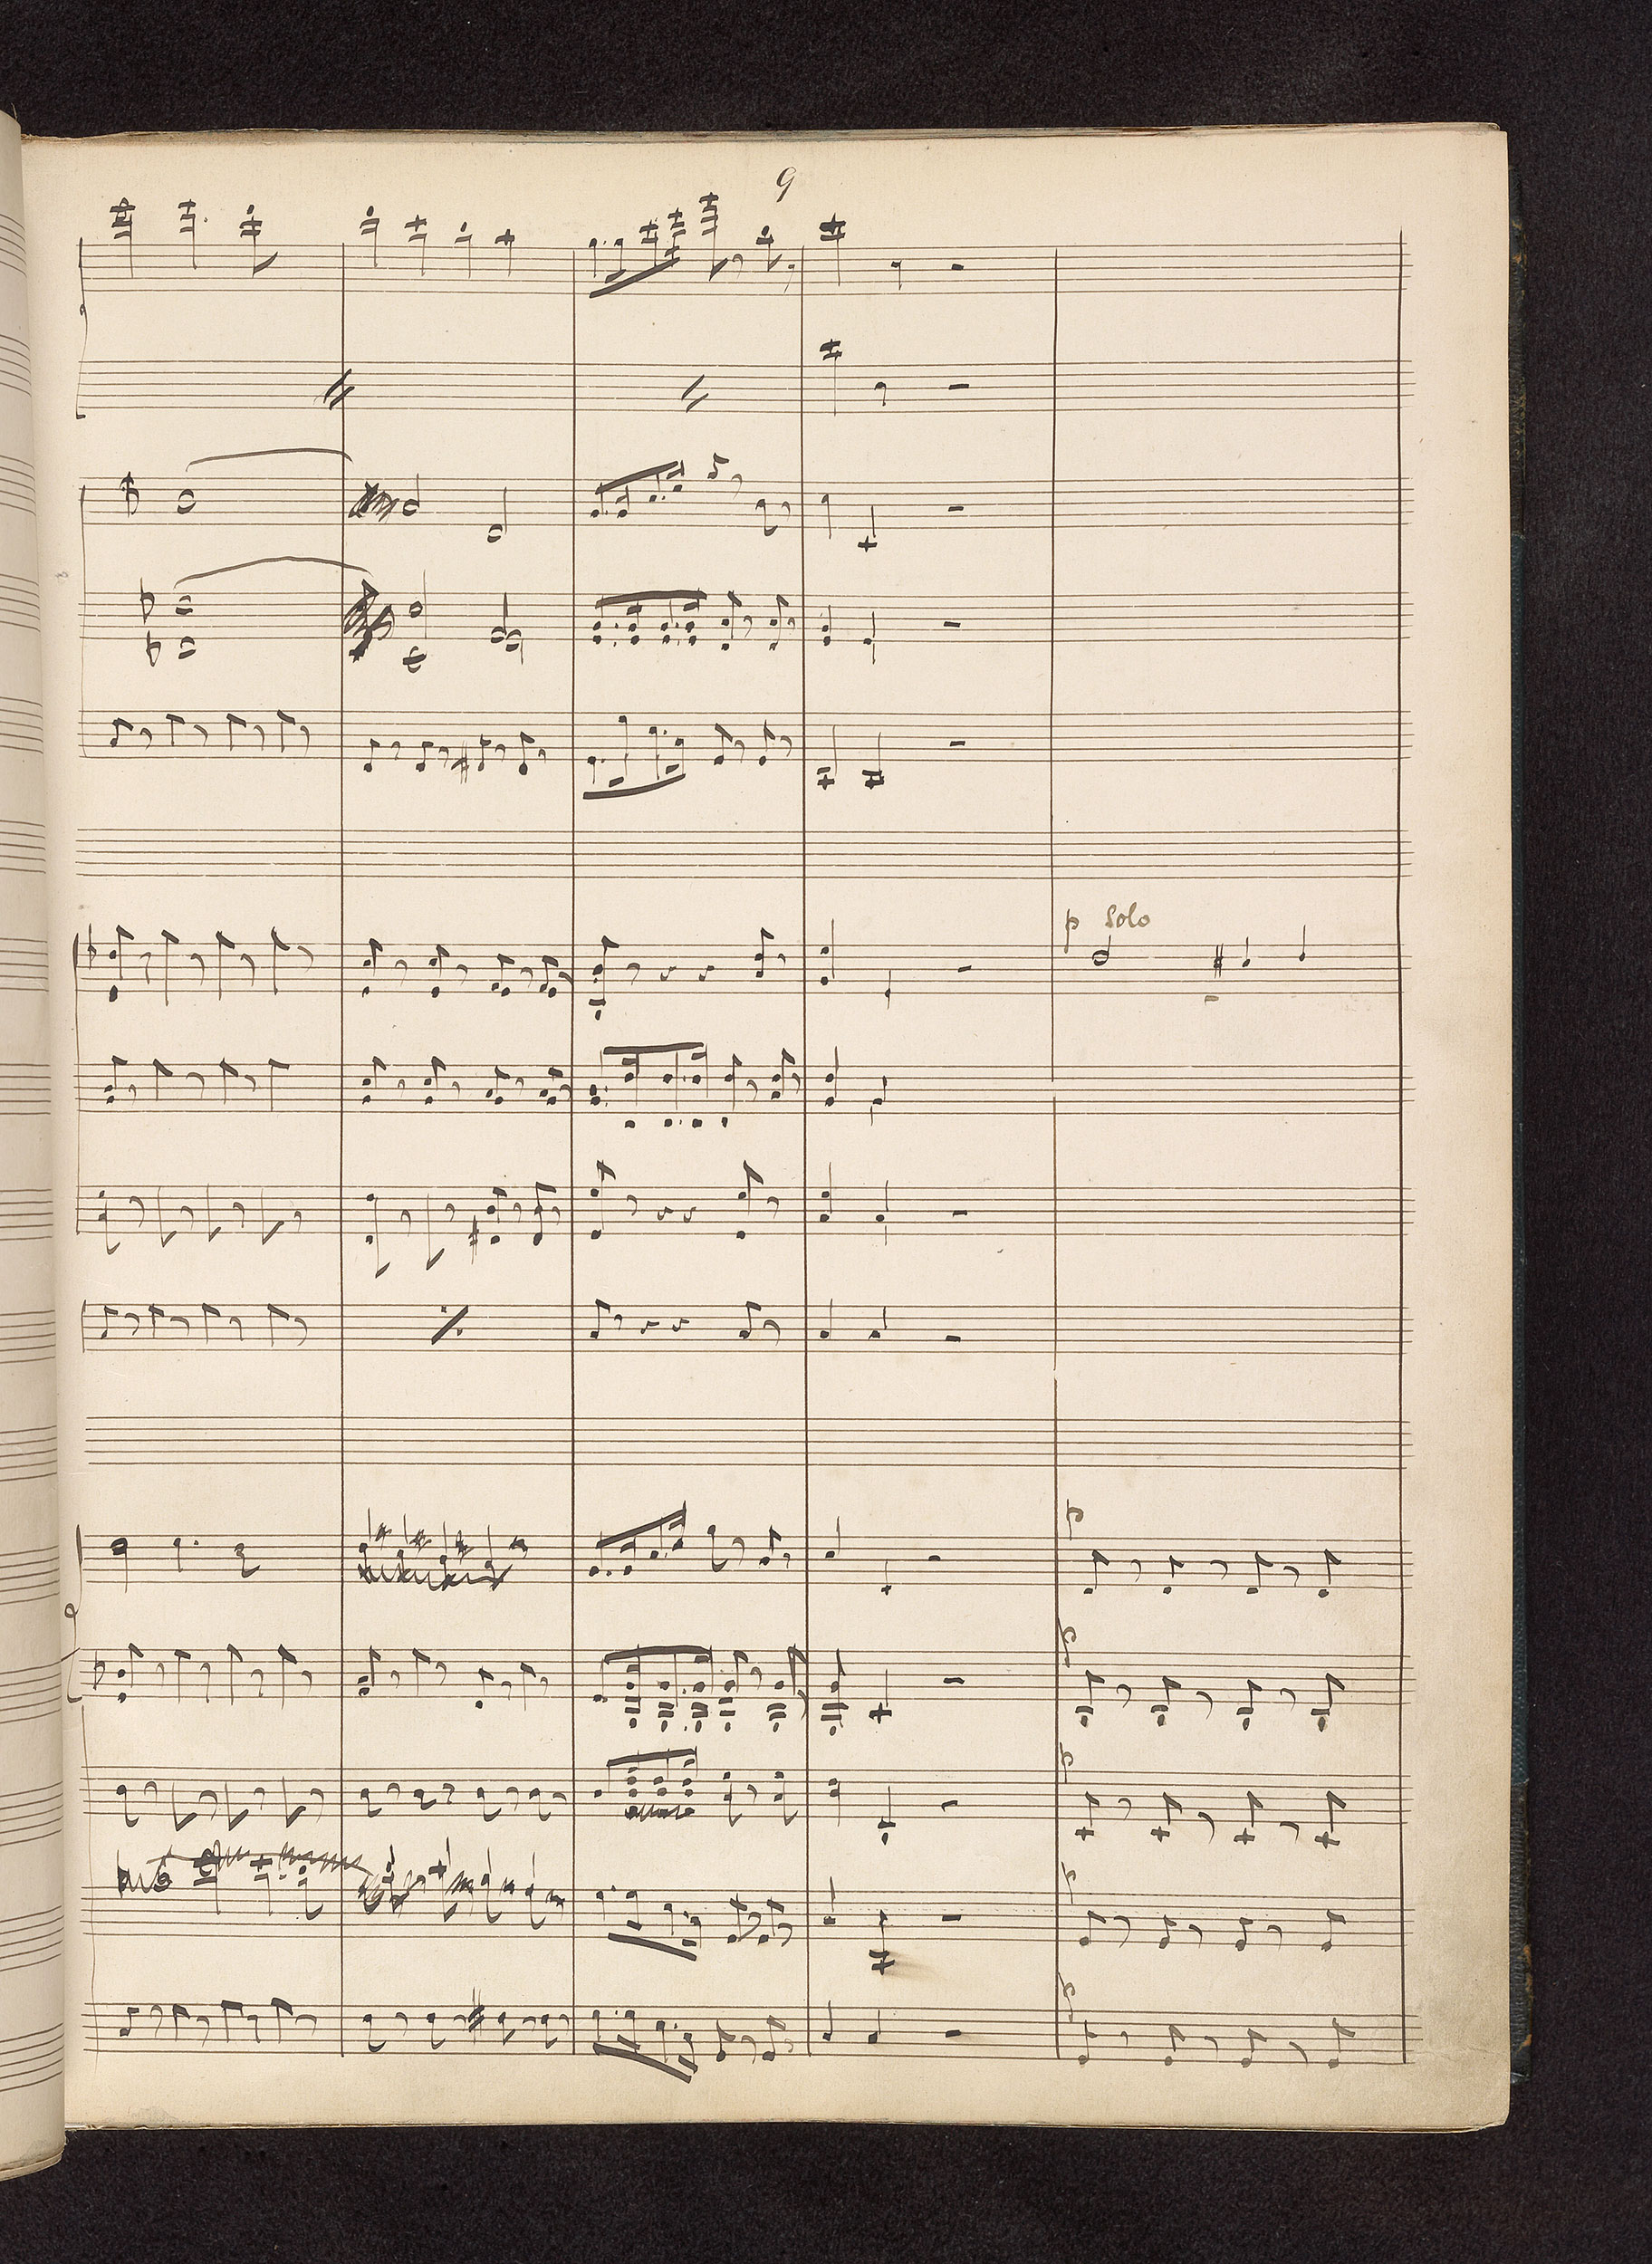 9
p Solo
p
p
p
p
p